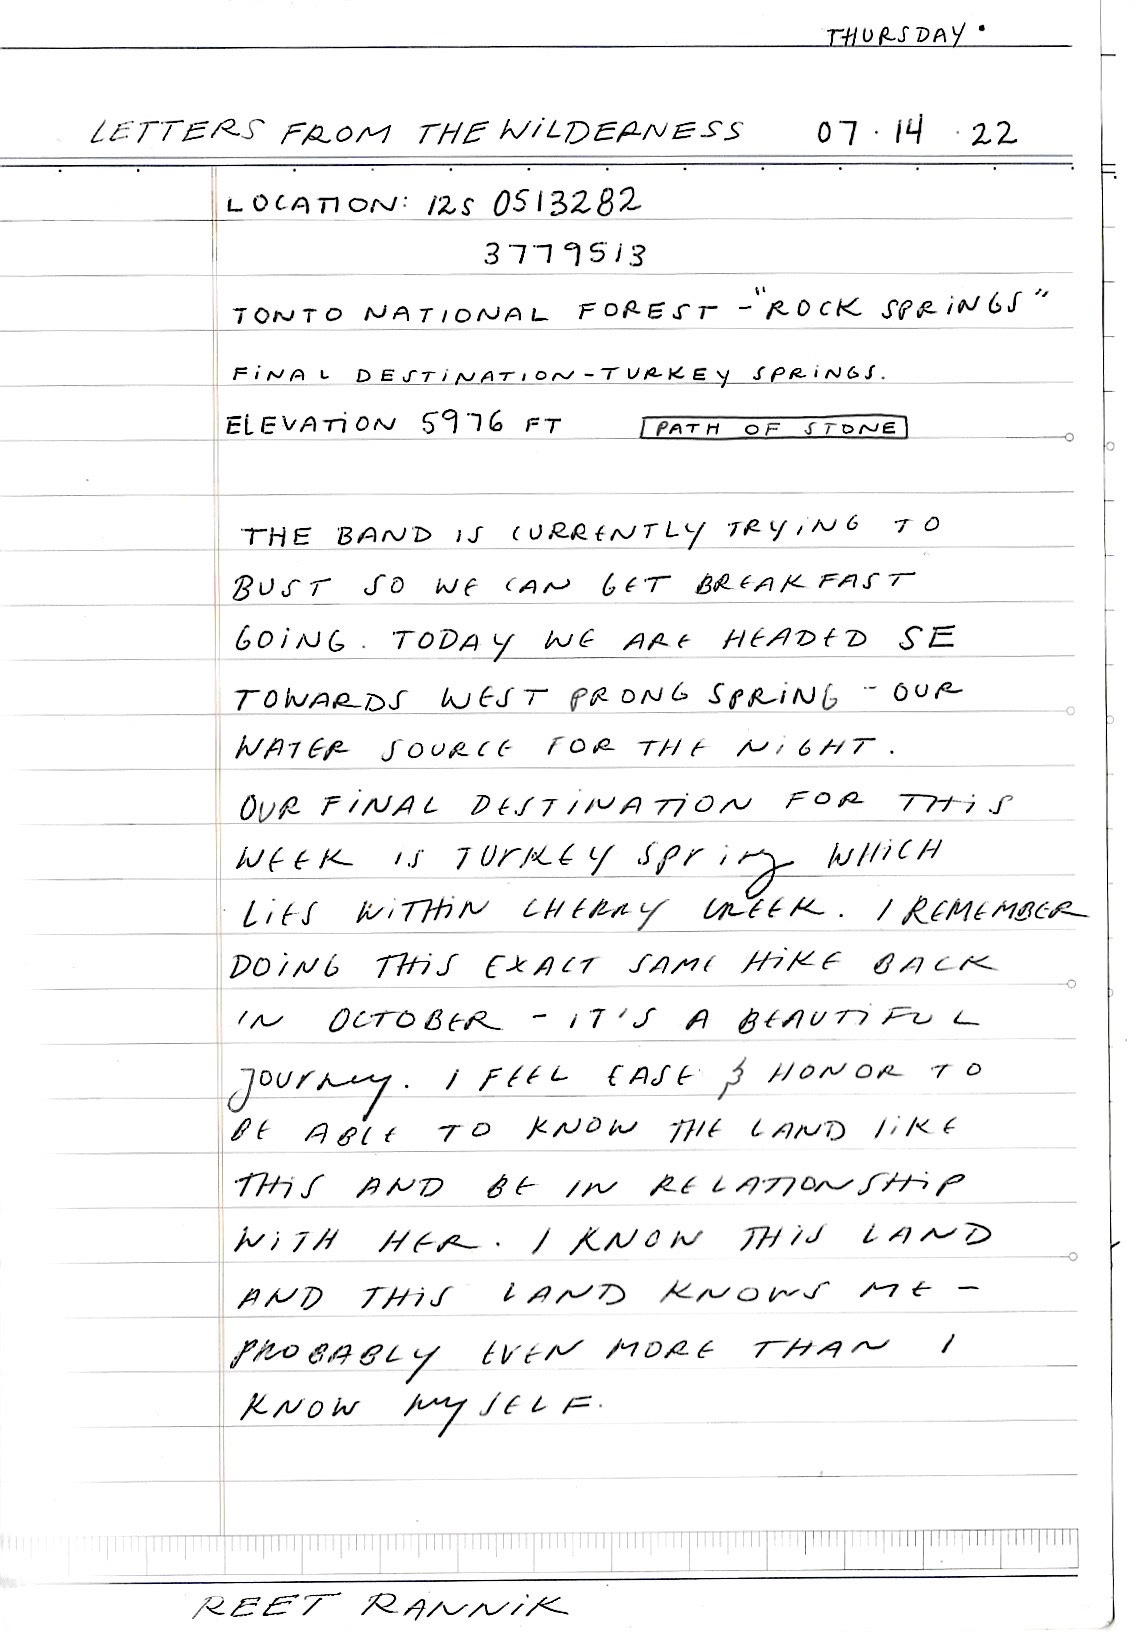 THURSDAY.
LETTERS FROM THE WILDERNESS 07.14.22
LOCATION: 12S 0513282
3779513
TONTO NATIONAL FOREST - "ROCK SPRINGS"
FINAL DESTINATION - TURKEY SPRINGS.
ELEVATION 5976 FT PATH OF STONE
THE BAND IS CURRENTLY TRYING TO
BUST SO WE CAN GET BREAKFAST
GOING. TODAY WE ARE HEADED SE
TOWARDS WEST PRONG SPRING - OUR
WATER SOURCE FOR THE NIGHT.
OUR FINAL DESTINATION FOR THIS
WEEK IS TURKEY SPring WHICH
LIES WITHIN CHERRY CREEK. I REMEMBER
DOING THIS EXACT SAME HIKE BACK
IN OCTOBER - IT'S A BEAUTIFUL
JOURney. I FEEL EASE & HONOR TO
BE ABLE TO KNOW THE LAND LIKE
THIS AND BE IN RELATIONSHIP
WITH HER. I KNOW THIS LAND
AND THIS LAND KNOWS ME -
PROBABLY EVEN MORE THAN I
KNOW mySELF.
REET RANNIK